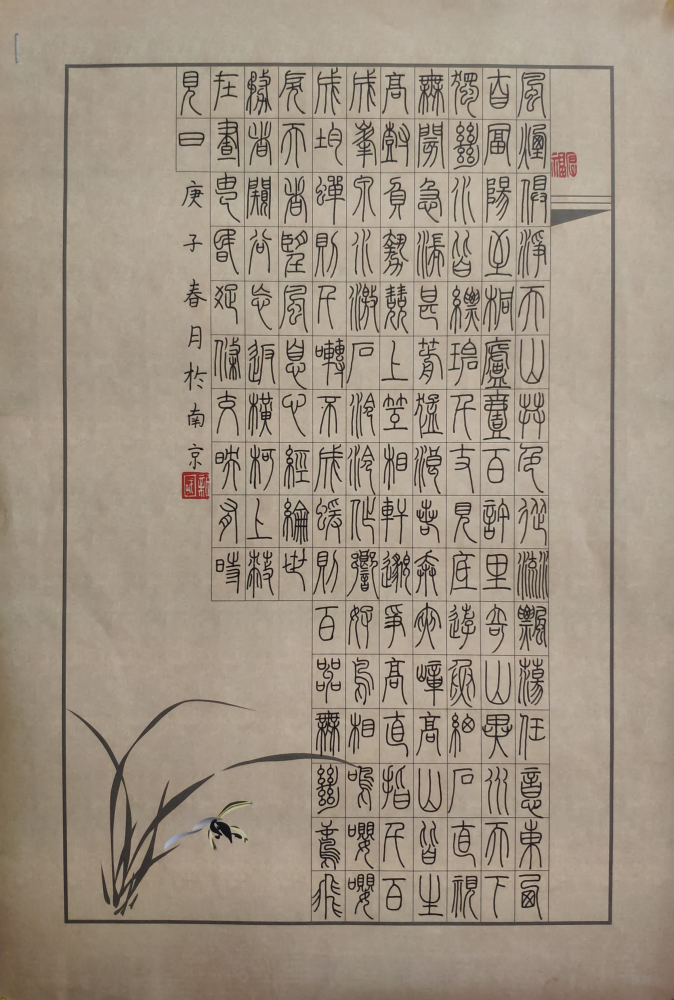 風煙俱淨天山共色從流飄蕩任意東西
自富陽至桐廬壹百許里奇山異水天下
獨絕水皆縹碧千丈見底游魚細石直視
無閡急湍甚箭猛浪若奔夾嶂高山皆生
高尌負勢競上互相軒邈爭高直指千百
成峯泉水激石泠泠作響好鳥相鳴嚶嚶
成均蟬則千囀不成蝯則百嘂無絕鳶飛
戾天者望風息心經綸世
務者闚谷忘返橫柯上蔽
在晝猶昏疏條交映有時
見日 庚子春月於南京